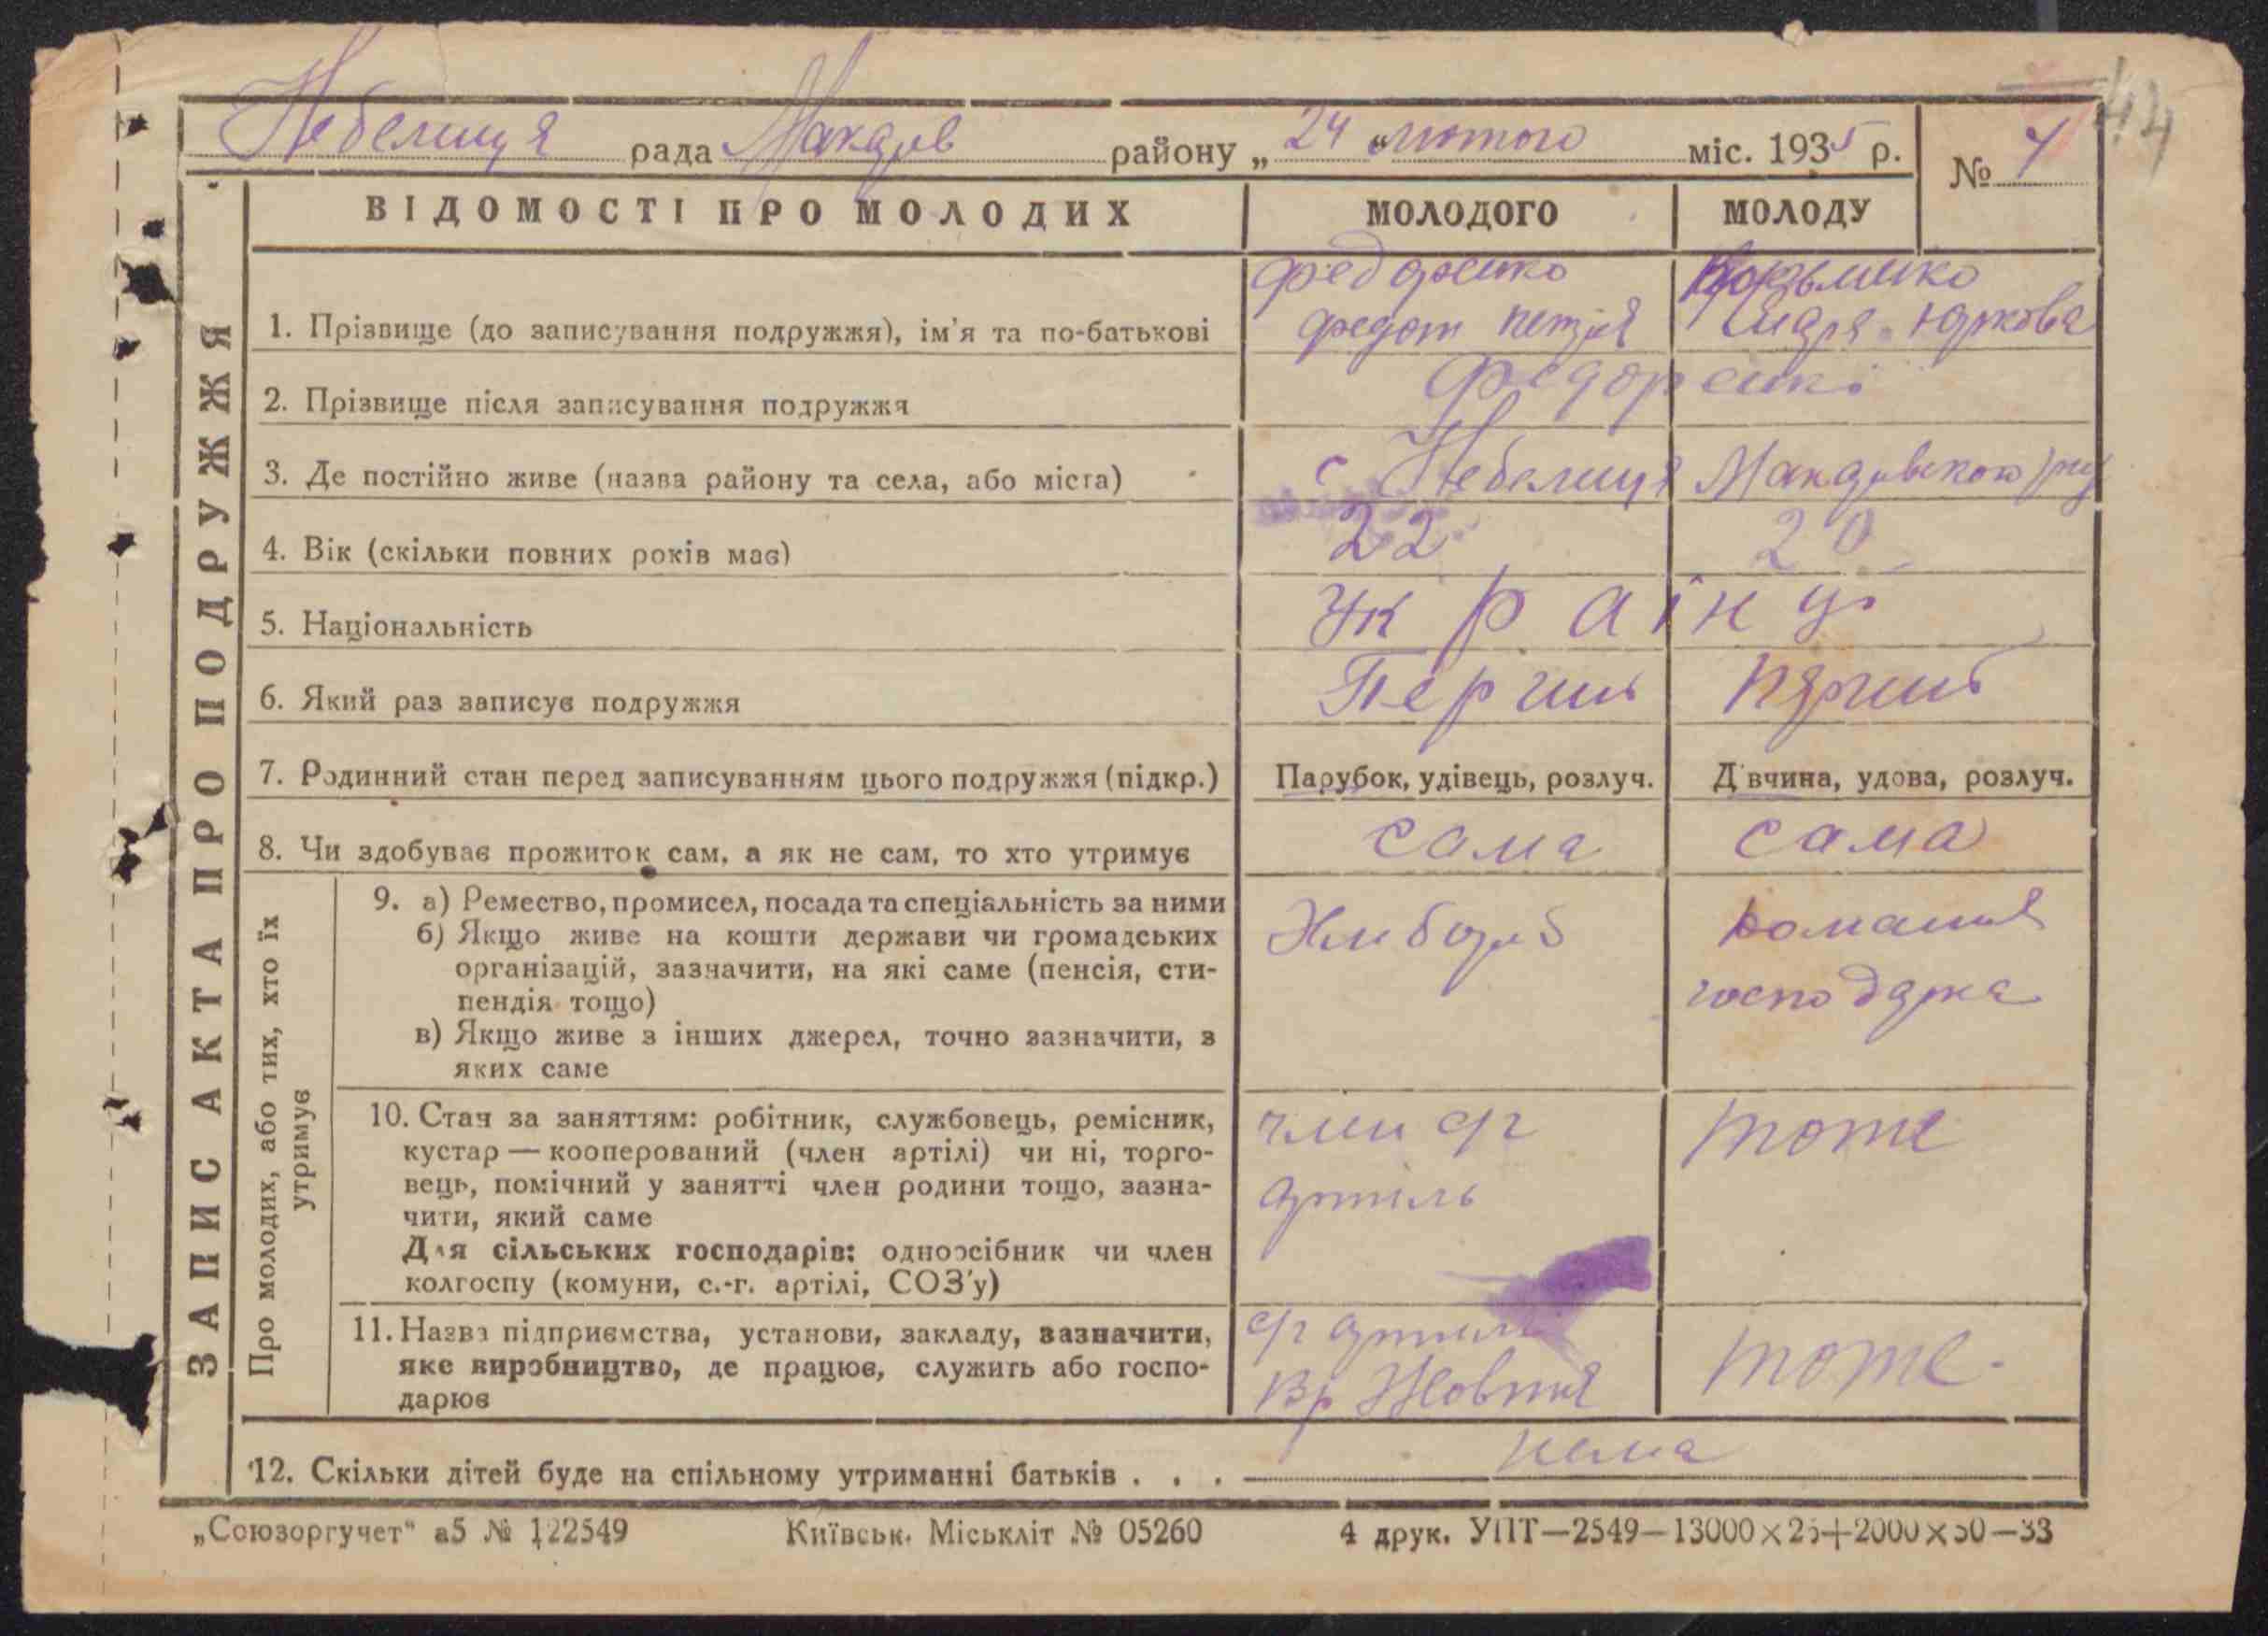 44
Небелиця рада Макарів району „ 24 “ лютого міс. 1935 р.
№
ЗАПИС АКТА ПРО ПОДРУЖЖЯ
ВІДОМОСТІ ПРО МОЛОДИХ МОЛОДОГО МОЛОДУ
1. Прізвище (до записування подружжя), ім'я та по-батькові
Федоренко
Федот
Юркова
2. Прізвище після записування подружжя Федоренкі
3. Де постійно живе (назва району та села, або міста) с Небелиця Макарівского
4. Вік (скільки повних років має) 22 20
5. Національність Українці
6. Який раз записує подружжя Перший
7. Родинний стан перед записуванням цього подружжя (підкр.) Парубок, удівець, розлуч. Дівчина, удова, розлуч.
8. Чи здобуває прожиток сам, а як не сам, то хто утримує сама сама
Про молодих, або тих, хто їх
утримує
9. а) Ремество, промисел, посада та спеціальність за ними
б) Якщо живе на кошти держави чи громадських
організацій, зазначити, на які саме (пенсія, сти-
пендія тощо)
в) Якщо живе з інших джерел, точно зазначити, з
яких саме
Хлибороб
домашня
господарка
10. Стан за заняттям: робітник, службовець, ремісник,
кустар — кооперований (член артілі) чи ні, торго-
вець, помічний у занятті член родини тощо, зазна-
чити, який саме
Для сільських господарів: одноосібник чи член
колгоспу (комуни, с.-г. артілі, СОЗ'у)
член с/г
артиль
тоже
11. Назва підприємства, установи, закладу, зазначити,
яке виробництво, де працює, служить або госпо-
дарює
с/г артиль
Жовтня
тоже
12. Скільки дітей буде на спільному утриманні батьків . . . нема
„Союзоргучет“ а5 № 122549 Київськ. Міськліт № 05260 4 друк. УПТ—2549—13000×25+2000×50—33